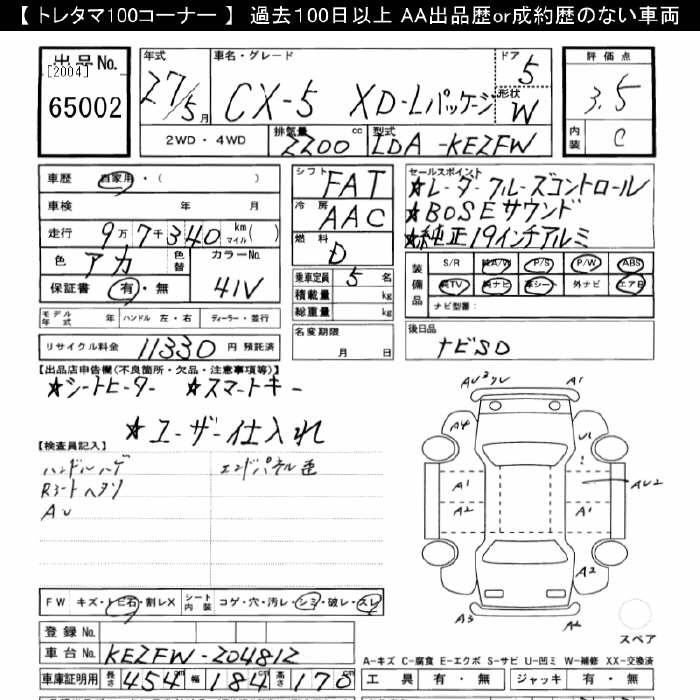 【 トレタマ100コーナー 】 過去100日以上 AA出品歴or成約歴のない車両
出品No.
[2004]
65002
年式
27/5月
車名・グレード
CX-5 XD-Lパッケージ
ドア
5
形状
W
評価点
3.5
内装
C
2WD・4WD
排気量
2200cc
型式
LDA-KE2FW
車歴 自家用・( )
車検 年 月
走行 9万7千340 km マイル( )
色 アカ 色替
カラーNo.
41V
保証書 有・無
シフト FAT
冷房 AAC
燃料 D
乗車定員 5 名
積載量 kg
総重量 kg
セールスポイント
★レーダークルーズコントロール
★BOSEサウンド
★純正19インチアルミ
装備品
S/R 純A/W P/S P/W ABS
純TV 純ナビ 革シート 外ナビ エアB
ナビ型番:
モデル年式 年 ハンドル 左・右 ディーラー・並行
名変期限
月 日
後日品
ナビSD
リサイクル料金 11330 円 預託済
【出品店申告欄(不良箇所・欠品・注意事項等)】
★シートヒーター ★スマートキー
★ユーザー仕入れ
【検査員記入】
ハンドルハゲ エンドパネル歪
Rシートヘタリ
AU
A1
A4
U1
A1
A1
AU2
A2
A2
A3
スペア
FW キズ・トビ石・割レX シート内装 コゲ・穴・汚レ・シミ・破レ・スレ
登録No.
車台No. KE2FW-204812
A-キズ C-腐食 E-エクボ S-サビ U-凹ミ W-補修 XX-交換済
車庫証明用 長さ 454cm 幅 184cm 高さ 170cm
工具 有・無 ジャッキ 有・無